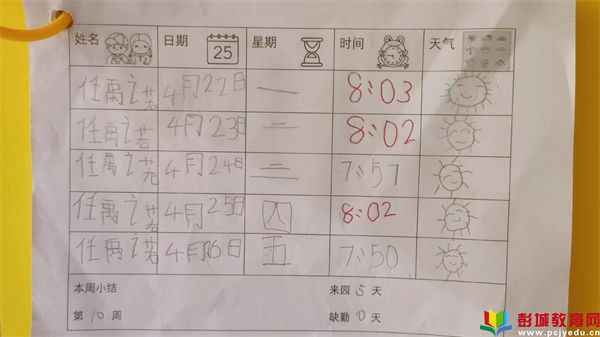 姓名 日期 25 星期 时间 天气
任禹之若 4月22日 一 8:03
任禹之若 4月23日 二 8:02
任禹之若 4月24日 三 7:57
任禹之若 4月25日 四 8:02
任禹之若 4月26日 五 7:50
本周小结 来园 5 天
第 10 周 缺勤 0 天
彭城教育网
www.pcjyedu.cn